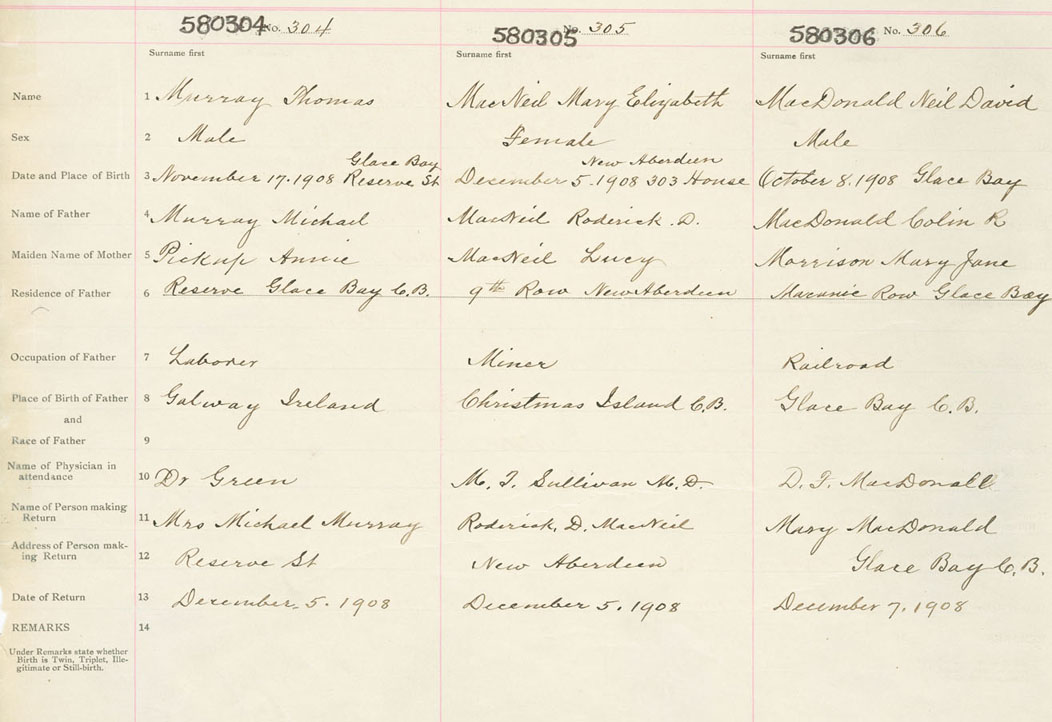 580304 No. 304 580305 No. 305 580306 No. 306
Surname first Surname first Surname first
Name 1 Murray Thomas MacNeil Mary Elizabeth MacDonald Neil David
Sex 2 Male Female Male
Glace Bay New Aberdeen
Date and Place of Birth 3 November 17. 1908 Reserve St December 5. 1908 303 House October 8. 1908 Glace Bay
Name of Father 4 Murray Michael MacNeil Roderick. D. MacDonald Colin R
Maiden Name of Mother 5 Pickup Annie MacNeil Lucy Morrison Mary Jane
Residence of Father 6 Reserve Glace Bay C.B. 9th Row New Aberdeen Row Glace Bay
Occupation of Father 7 Laborer Miner Railroad
Place of Birth of Father 8 Galway Ireland Christmas Island C.B. Glace Bay C.B.
and
Race of Father 9
Name of Physician in
attendance 10 Dr Green M. T. Sullivan M.D. D. F. MacDonald
Name of Person making
Return 11 Mrs Michael Murray Roderick. D. MacNeil Mary MacDonald
Address of Person mak-
ing Return 12 Reserve St New Aberdeen Glace Bay C.B.
Date of Return 13 December. 5. 1908 December 5. 1908 December 7. 1908
REMARKS 14
Under Remarks state whether
Birth is Twin, Triplet, Ille-
gitimate or Still-birth.